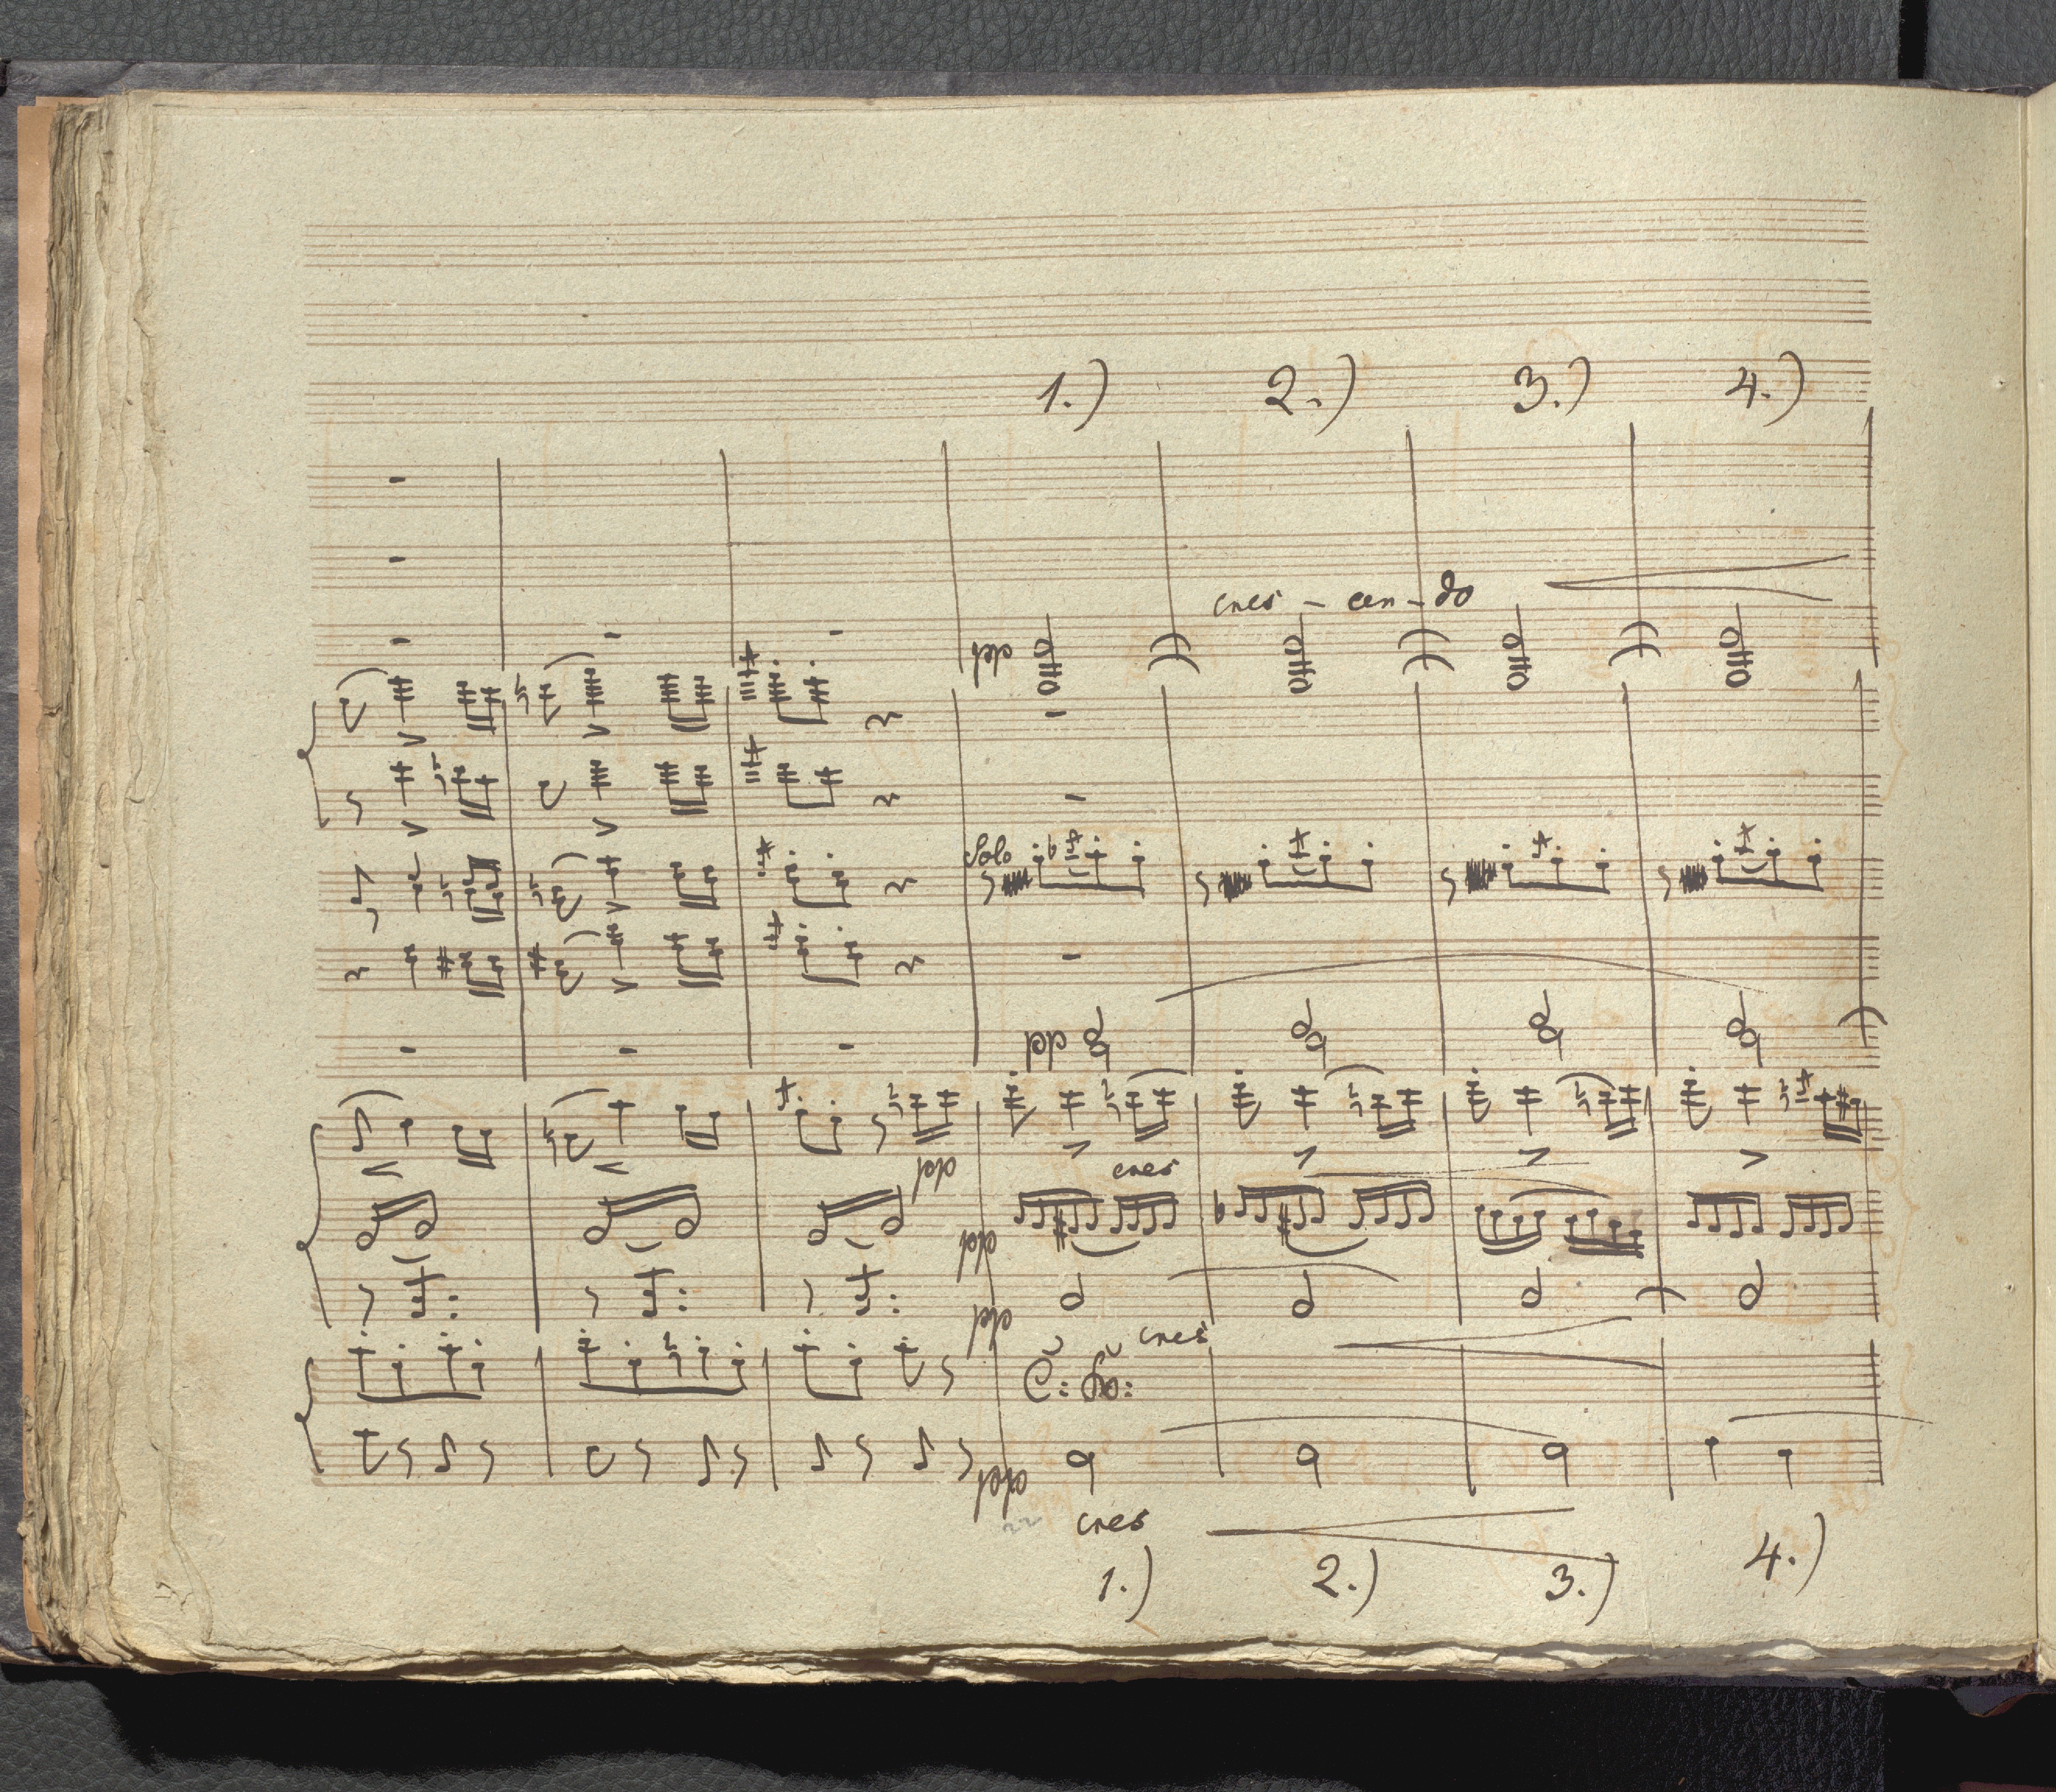 1.) 2.) 3.) 4.)
cres - cen - do
pp
Solo
pp
pp
cres
pp
pp
cres
C: Bo:
pp
cres
1.) 2.) 3.) 4.)